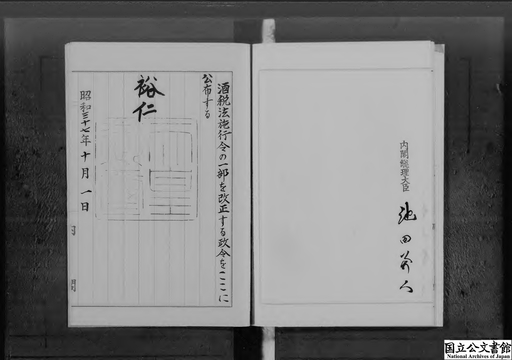 内閣総理大臣 池田勇人
酒税法施行令の一部を改正する政令をここに
公布する
裕仁
昭和三十七年十月一日
国立公文書館
National Archives of Japan